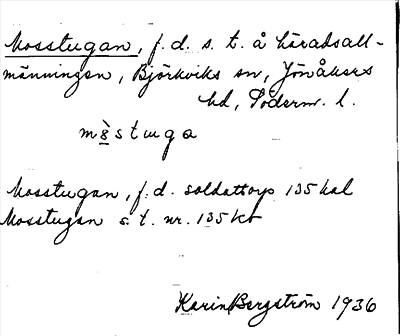 Mosstugan, f. d. s. t. å häradsall-
männingen, Björkviks sn, Jönåkers
hd, Söderm. l.
mòstuga
Mosstugan, f. d. soldattorp 135 kal
Mosstugan s. t. nr. 135 kb
Karin Bergström 1936